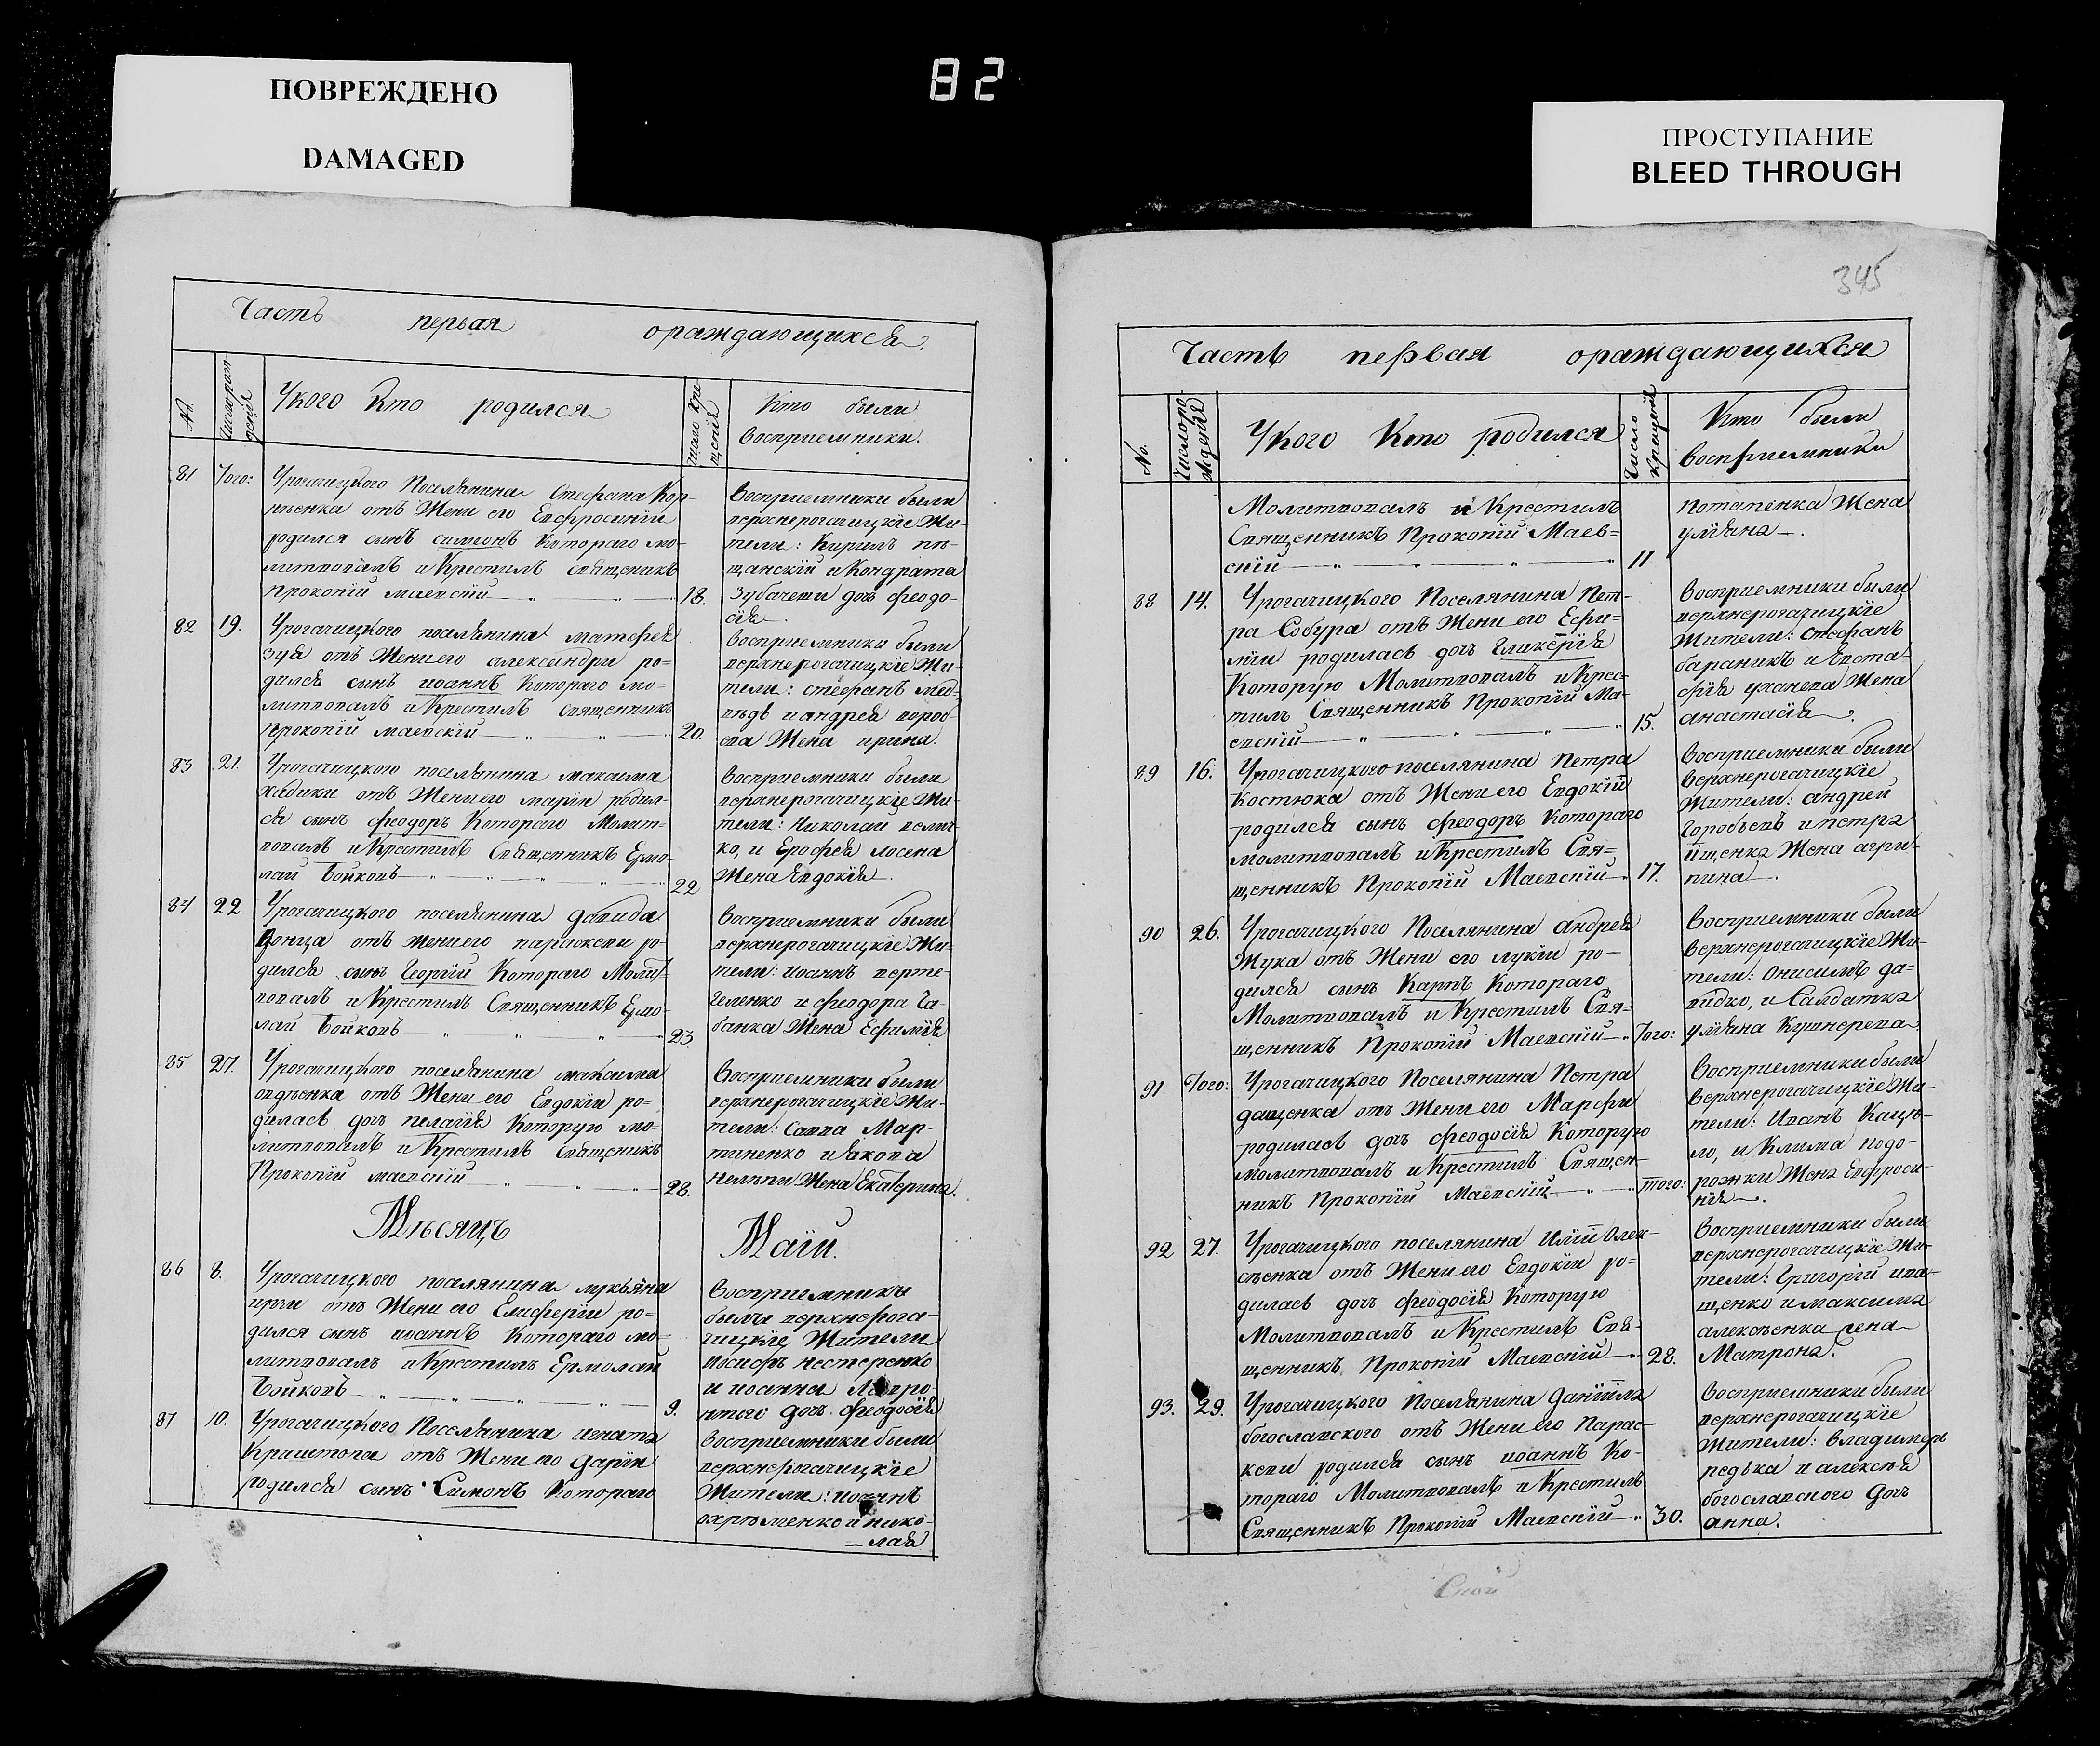 ПОВРЕЖДЕНО
DAMAGED
82
ПРОСТУПАНИЕ
BLEED THROUGH
345
Часть первая ораждающихся.
№.
Число раж
денія
Укого Кто родился
число кре
щенія
Кто были
восприемники.
81 Того: Урогачицкого Поселянина Стефана Кор-
нѣенка отъ Жени его Евфросиніи
родился сынъ симеонъ Котораго мо-
литвовалъ и Крестилъ священникъ
прокопій маевскій 18.
Восприемники были
верхнерогачицкіе Жи-
тели: Кирилъ пѣ-
щанскій и Кондрата
Зубачеви дочь феодо-
сія.
82 19. Урогачицкого поселянина матфея
Зуя отъ Жени его александри ро-
дился сынъ иоаннъ Котораго мо-
литвовалъ и Крестилъ Священникъ
прокопій маевскій 20.
Восприемники были
верхнерогачицкіе Жи-
тели: стефанъ мед-
вѣдь и андрея вороб-
ева Жена ирина.
83 21. Урогачицкого поселянина максима
хадики отъ Жени его маріи родил-
ся сынъ феодоръ Котораго Молит-
вовалъ и Крестилъ Священникъ Ермо-
лай Бойковъ 22
Восприемники были
верхнерогачицкіе Жи-
тели: Николай велич-
ко, и Ерофея лосена
Жена Евдокія.
84 22. Урогачицкого поселянина давида
Донца отъ жени его параскеви ро-
дился сынъ Георгій Котораго Молит-
вовалъ и Крестилъ Священникъ Ермо-
лай Бойковъ 23
Восприемники были
верхнерогачицкіе Жи-
тели: иоаннъ верте-
геленко и феодора Ча-
банка Жена Ефимія
85 27. Урогачицкого поселянина максима
овдѣенка отъ Жени его Евдокіи ро-
дилась дочь пелагія Которую мо-
литвовалъ и Крестилъ Священикъ
Прокопій маевскій 28.
Восприемники были
верхнерогачицкіе Жи-
тели: Савва Мар-
тиненко и якова
нелѣпи Жена Екатерина.
Мѣсяцъ Маій.
86 8. Урогачицкого поселянина лукьяна
ирхи отъ Жени его Елиферіи ро-
дился сынъ иоаннъ Котораго мо-
литвовалъ и Крестилъ Ермолай
Бойковъ 9.
Восприемникы
былы верхнерога-
чицкіе Жители
иосифъ нестеренко
и иоанна Лавро-
дочь феодосія
87 10. Урогачицкого Поселянина игната
Криштопа отъ Жени его даріи
родился сынъ Симонъ Котораго
Восприемники были
верхнерогачицкіе
Жители: иоаннъ
охрѣменко и нико-
лая
Часть первая ораждающихся
№.
Число ро
жденія
Укого Кто родился
Число
крещенія
Кто были
восприемники
Молитвовалъ и Крестилъ
Священникъ Прокопій Маев=
скій 11
потапенка Жена
уліяна.
88 14. Урогачицкого Поселянина Пет-
ра Собура отъ Жени его Ефи-
міи родилась дочь Гликерія
Которую Молитвовалъ и Крес-
тилъ Священникъ Прокопій Ма-
евскій 15.
Восприемники были
верхнерогачицкіе
Жители: стефанъ
бараникъ и Евста-
фія уханева Жена
анастасія.
89 16. Урогачицкого поселянина Петра
Костюка отъ Жени его Евдокіи
родился сынъ феодоръ Котораго
молитвовалъ и Крестилъ Свя=
щенникъ Прокопій Маевскій 17.
Восприемники были
верхнерогачицкіе
Жители: андрей
Горобьевъ и петра
ищенка Жена агри-
пина.
90 26. Урогачицкого Поселянина андрея
Жука отъ Жени его лукіи ро-
дился сынъ Карпъ Котораго
Молитвовалъ и Крестилъ Свя=
щенникъ Прокопій Маевскій Того:
Восприемники были
верхнерогачицкіе Жи-
тели: Онисимъ да=
видко, и Салдатка
уліяна Кушнерева
91 Того: Урогачицкого Поселянина Петра
дащенка отъ Жени его Марфи
родилась дочь феодосія Которую
молитвовалъ и Крестилъ Священ-
никъ Прокопій Маевскій того:
Восприемники были
верхнерогачицкіе Жи-
тели: Иванъ Кацѣ-
ло, и Клима подо-
рожки Жена Евфроси-
нія.
92 27. Урогачицкого поселянина Иліи Олек-
сѣенка отъ Жени его Евдокіи ро=
дилась дочь феодосія Которую
Молитвовалъ и Крестилъ Свя-
щенникъ Прокопій Маевскій 28.
Восприемники были
верхнерогачицкіе Жи-
тели: Григорій ива-
щенко и максима
алексѣенка
Матрона.
93. 29. Урогачицкого Поселянина Даніила
богославского отъ Жени его Парас-
кеви родился сынъ иоаннъ Ко-
тораго Молитвовалъ и Крестилъ
Священникъ Прокопій Маевскій 30.
Восприемники были
верхнерогачицкіе
Жители: владимеръ
редька и алексѣя
богославского дочь
анна.